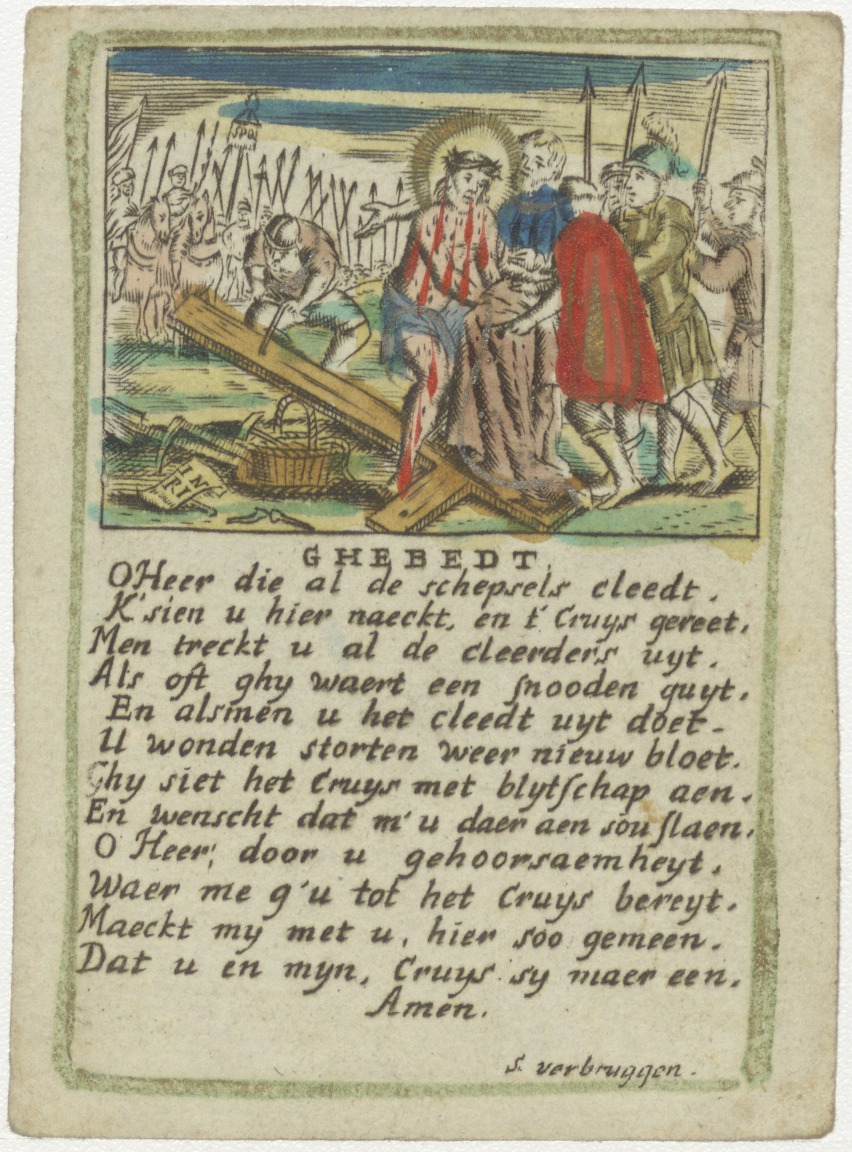 SPQ
IN
RI
GHEBEDT.
O Heer die al de schepsels cleedt.
K'sien u hier naeckt, en t' Cruys gereet.
Men treckt u al de cleerders uyt.
Als oft ghy waert een snooden guyt.
En alsmen u het cleedt uyt doet.
U wonden storten weer nieuw bloet.
Ghy siet het Cruys met blytschap aen.
En wenscht dat m'u daer aen sou slaen.
O Heer, door u gehoorsaemheyt.
Waer me g'u tot het Cruys bereyt.
Maeckt my met u, hier soo gemeen.
Dat u en myn, Cruys sy maer een.
Amen.
s. verbruggen.